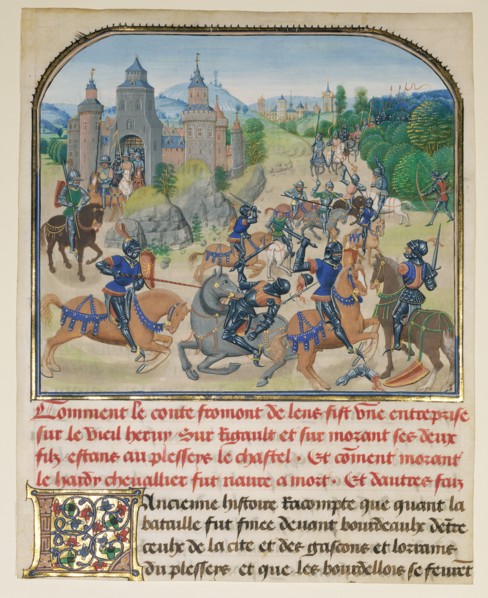 Comment le conte fromont de lens fist vne entreprise
sur le vieil heruy Sur Rigault et sur morant ses deux
filz estans au plesseys le chastel . Et cõment morant
le hardy cheuallier fut naure a mort . Et dautres faiz
Ancienne histoire Racompte que quant la
bataille fut finee deuant bourdeaulx dẽtre
ceulx de la cite et des gascons et lorrains
du plesseys et que les bourdellois se feuret